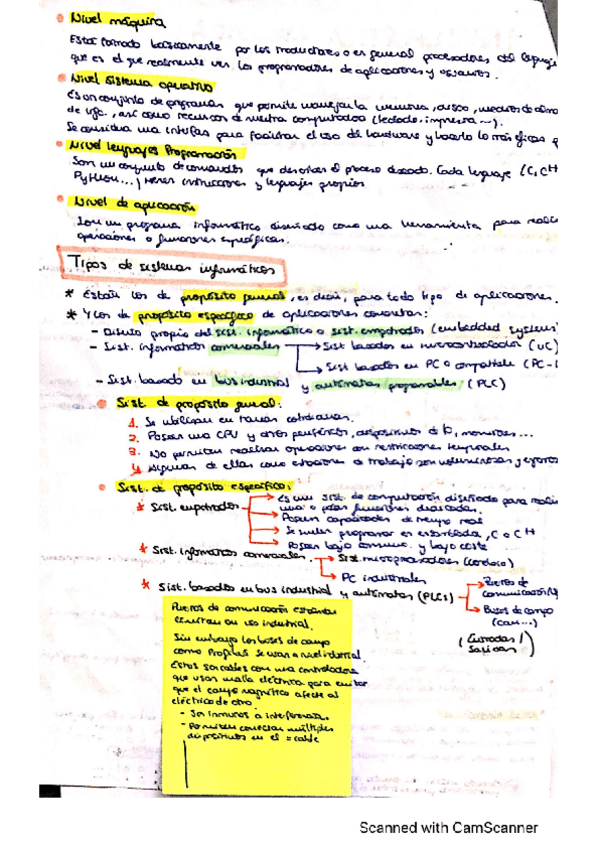 Nivel máquina
Está formado básicamente por los traductores o en general procesadores del lenguaje
que es el que realmente ven los programadores de aplicaciones y usuarios.
Nivel sistema operativo
Es un conjunto de programas que permite manejar la memoria, disco, medios de
de info., así como recursos de nuestra computadora (teclado, impresora ...).
Se considera una interfaz para facilitar el uso del hardware y hacerlo lo más eficaz p
Nivel lenguajes Programación
Son un conjunto de comandos que describen el proceso deseado. Cada lenguaje (C, C++
Python...) tienen instrucciones y lenguajes propios
Nivel de aplicación
Son un programa informático diseñado como una herramienta para realiz
operaciones o funciones específicas.
Tipos de sistemas informáticos
* Están los de propósito general, es decir, para todo tipo de aplicaciones.
* Y los de propósito específico de aplicaciones concretas:
- Diseño propio del sist. informático o sist. empotrados (embedded systems)
- Sist. informáticos comerciales → Sist basados en microcontrolador (UC)
→ Sist basados en PC o compatible (PC-
- Sist. basado en bus industrial y autómatas programables (PLC)
Sist. de propósito general:
1. Se utilizan en tareas cotidianas.
2. Poseen una CPU y otros periféricos, dispositivos de IO, monitores...
3. No permiten realizar operaciones con restricciones temporales
4. Algunas de ellas como estaciones de trabajo son voluminosas y
Sist. de propósito específico:
* Sist. empotrados → Es un sist. de computación diseñado para realiz
una o pocas funciones dedicadas.
→ Poseen capacidades de tiempo real
→ Se suelen programar en ensamblador, C o C++
→ Poseen bajo consumo y bajo coste
* Sist. informáticos comerciales. → Sist. microprocesadores
→ PC industriales
* Sist. basados en bus industrial y autómatas (PLCs) → Puertos de
comunicación
→ Buses de campo
(can...)
(Entradas /
Salidas)
Puertos de comunicación estándar
conectan con uso industrial.
Sin embargo los buses de campo
como Profibus se usan a nivel industrial.
Estos son cables con una controladora
que usan malla eléctrica para evitar
que el campo magnético afecte al
eléctrico de otro.
- Son inmunes a interferencias
- Permiten conectar múltiples
dispositivos en el = cable
Scanned with CamScanner